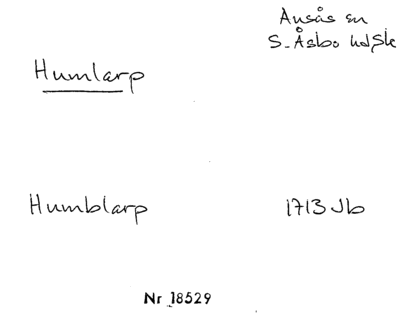 Ausås sn
S. Åsbo hd Sk
Humlarp
Humblarp 1713 Jb
Nr 18529